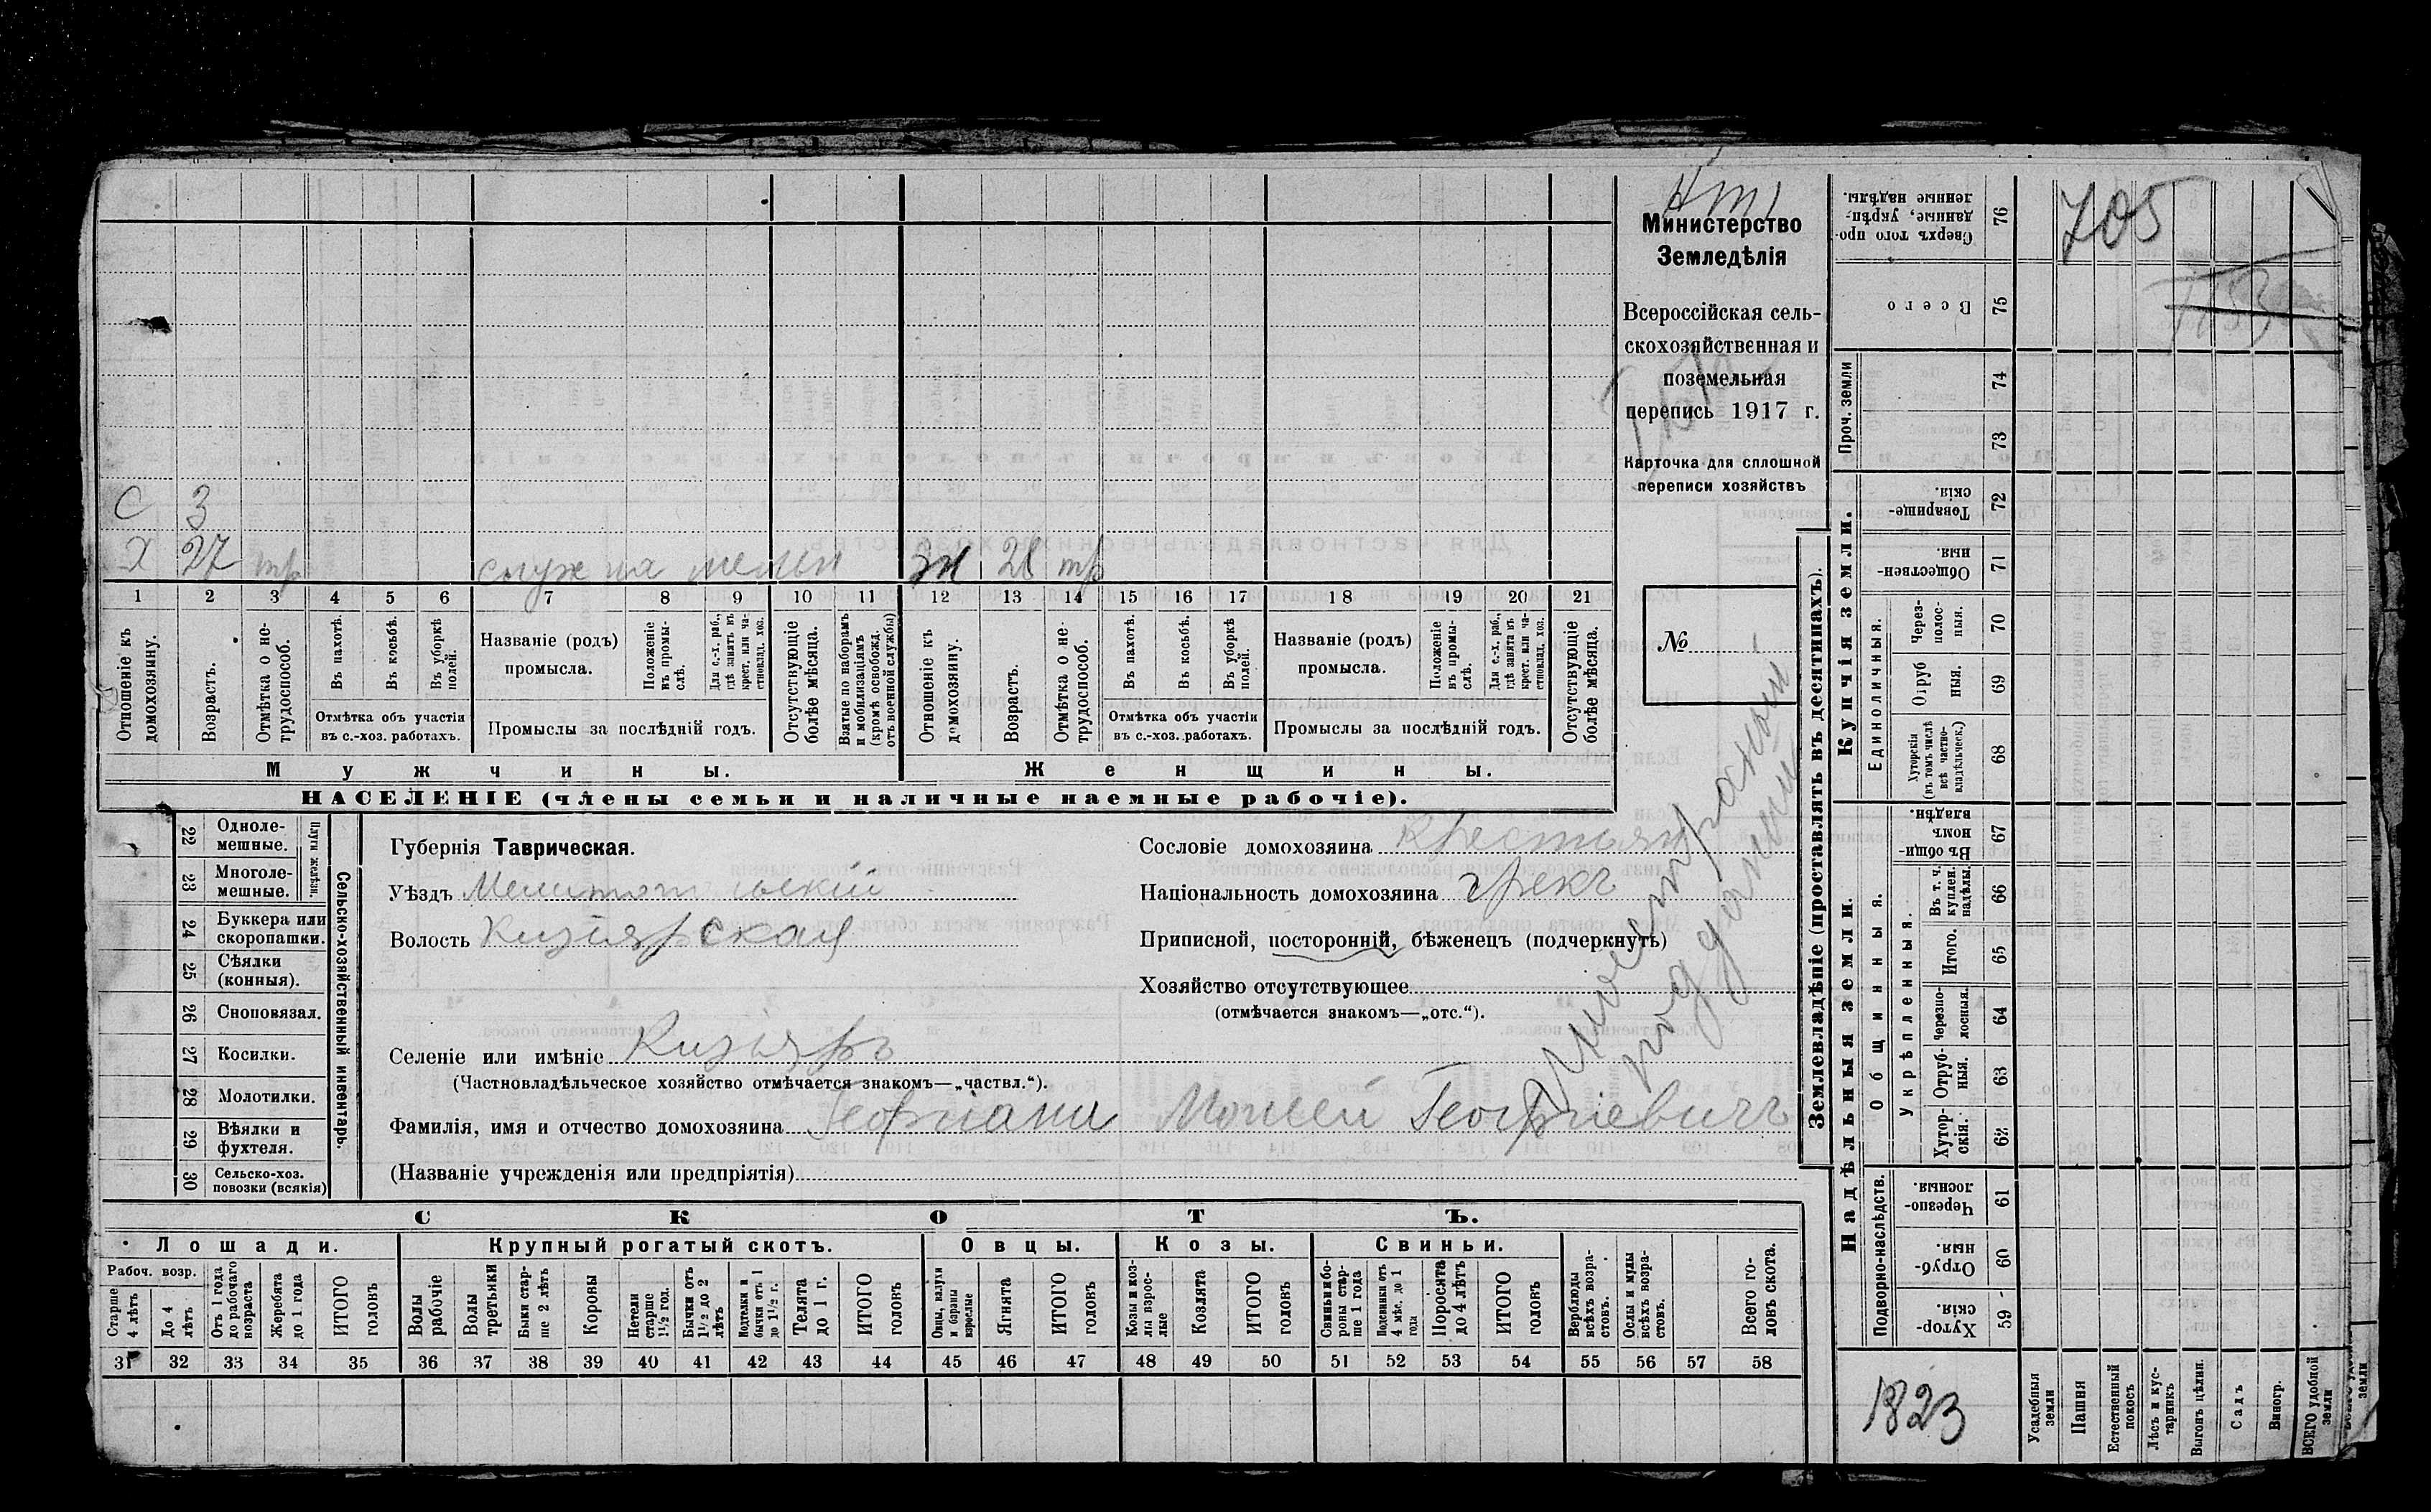 Министерство
Земледѣлія
Всероссійская сель-
скохозяйственная и
поземельная
перепись 1917 г.
Карточка для сплошной
переписи хозяйствъ
№ 1
С 3
Х 27 тр служ на мельн жн 28 тр
1 2 3 4 5 6 7 8 9 10 11 12 13 14 15 16 17 18 19 20 21
Отношеніе къ домохозяину.
Возрастъ.
Отмѣтка о не-трудоспособ.
Въ пахотѣ.
Въ косьбѣ.
Въ уборкѣ полей.
Отмѣтка объ участіи
въ с.-хоз. работахъ.
Названіе (родъ)
промысла.
Положеніе въ промы-слѣ.
Для с.-х. раб., гдѣ занятъ въ крест. или ча-стновлад. хоз.
Промыслы за послѣдній годъ.
Отсутствующіе болѣе мѣсяца.
Взятые по наборамъ и мобилизаціамъ (кромѣ освобожд. отъ военной службы)
Отношеніе къ домохозяину.
Возрастъ.
Отмѣтка о не-трудоспособ.
Въ пахотѣ.
Въ косьбѣ.
Въ уборкѣ полей.
Отмѣтка объ участіи
въ с.-хоз. работахъ.
Названіе (родъ)
промысла.
Положеніе въ промы-слѣ.
Для с.-х. раб., гдѣ занята въ крест. или ча-стновлад. хоз.
Промыслы за послѣдній годъ.
Отсутствующіе болѣе мѣсяца.
Мужчины. Женщины.
НАСЕЛЕНІЕ (члены семьи и наличные наемные рабочіе).
22 Одноле-мешные.
23 Многоле-мешные.
Плуги желѣзн.
24 Буккера или скоропашки.
25 Сѣялки (конныя).
26 Сноповязал.
27 Косилки.
28 Молотилки.
29 Вѣялки и фухтеля.
30 Сельско-хоз. повозки (всякія)
Сельско-хозяйственный инвентарь.
Губернія Таврическая.
Уѣздъ Мелитопольскій
Волость Кизіярская
Селеніе или имѣніе Кизіяръ
(Частновладѣльческое хозяйство отмѣчается знакомъ—„частвл.“).
Фамилія, имя и отчество домохозяина Моисей Георгіевичъ
(Названіе учрежденія или предпріятія)
Сословіе домохозяина Крестьян
Національность домохозяина грекъ
Приписной, посторонній, бѣженецъ (подчеркнуть)
Хозяйство отсутствующее
(отмѣчается знакомъ—„отс.“).
Иностранный
подданный
СКОТЪ.
Лошади. Крупный рогатый скотъ. Овцы. Козы. Свиньи.
Рабоч. возр.
Старше 4 лѣтъ
До 4 лѣтъ
Отъ 1 года до рабочаго возраста
Жеребята до 1 года
ИТОГО головъ
Волы рабочіе
Волы третьяки
Быки стар-ше 2 лѣтъ
Коровы
Нетели старше 1½ год.
Бычки отъ 1½ до 2 лѣтъ
Подтелки и бычки отъ 1 до 1½ г.
Телята до 1 г.
ИТОГО головъ
Овцы, валухи и бараны взрослые
Ягнята
ИТОГО головъ
Козы и коз-лы взрос-лые
Козлята
ИТОГО головъ
Свиньи и бо-ровы стар-ше 1 года
Подсвинки отъ 4 мѣс. до 1 года
Поросята до 4 лѣтъ
ИТОГО головъ
Верблюды всѣхъ возра-стовъ.
Ослы и мулы всѣхъ возра-стовъ.
Всего го-ловъ скота.
31 32 33 34 35 36 37 38 39 40 41 42 43 44 45 46 47 48 49 50 51 52 53 54 55 56 57 58
Землевладѣніе (проставлять въ десятинахъ).
Купчія земли.
Надѣльныя земли.
Сверхъ того про-данные, укрѣп-ленные надѣлы. 76
Всего 75
Проч. земли 74 73
Товарище-скія. 72
Обществен-ныя. 71
Единоличныя.
Через-полос-ныя. 70
Отруб ныя. 69
Хуторскія (въ томъ числѣ всѣ частно-владѣльческ.) 68
Общинныя.
Въ общи-номъ владѣн. 67
Укрѣпленныя.
Въ т. ч. куплен. надѣлы. 66
Итого. 65
Черезпо-лосныя. 64
Отруб-ныя. 63
Хутор-скія. 62
Подворно-наслѣдств.
Черезпо-лосныя. 61
Отруб-ныя. 60
Хутор-скія. 59
Усадебныя земли
Пашня
Естественный покосъ
Лѣсъ и кус-тарникъ
Выгонъ цѣлин.
Садъ
Виногр.
ВСЕГО удобной земли
705
1823